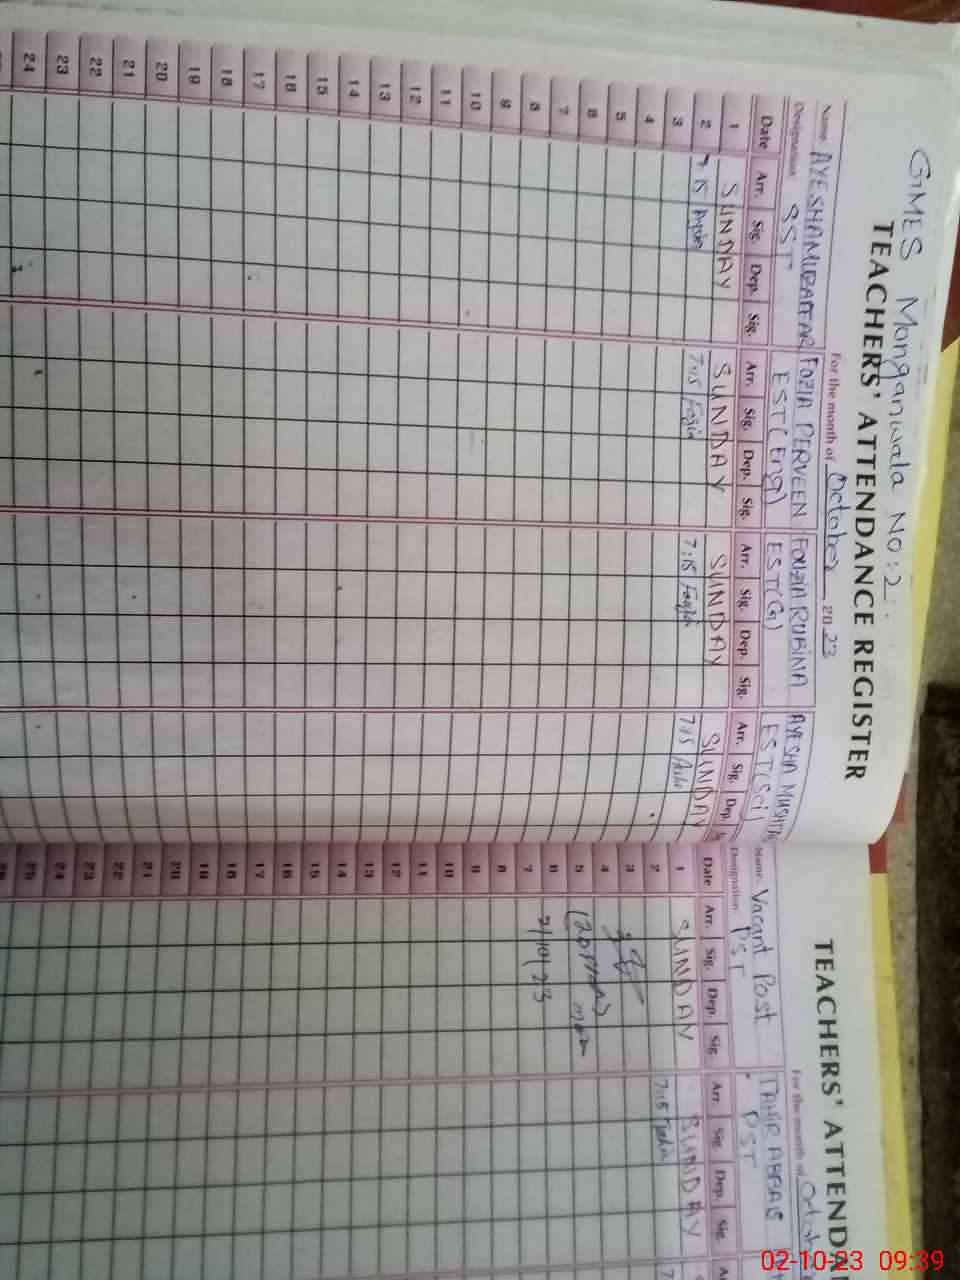 GMES Monganwala No:2
TEACHERS' ATTENDANCE REGISTER
For the month of October 2023
Name: AYESHA MUZAFFAR FOZIA PERVEEN FOUZIA RUBINA AYESHA MUSHTAQ
Designation: SST EST(Eng) EST(G) EST(Sci)
Date Arr. Sig. Dep. Sig. Arr. Sig. Dep. Sig. Arr. Sig. Dep. Sig. Arr. Sig. Dep.
1 SUNDAY SUNDAY SUNDAY SUNDAY
2 7:15 Ayesha 7:15 Fozia 7:15 Fouzia 7:15
3
4
5
6
7
8
9
10
11
12
13
14
15
16
17
18
19
20
21
22
23
24
TEACHERS' ATTENDA
For the month of Octob
Name: Vacant Post TAHIR ABBAS
Designation: PST PST
Date Arr. Sig. Dep. Sig. Arr. Sig. Dep. Sig.
1 SUNDAY SUNDAY
2 7:15 Tahir
3
4
5
6
7 2/10/23
8
9
10
11
12
13
14
15
16
17
18
19
20
21
22
23
24
25
02-10-23 09:39